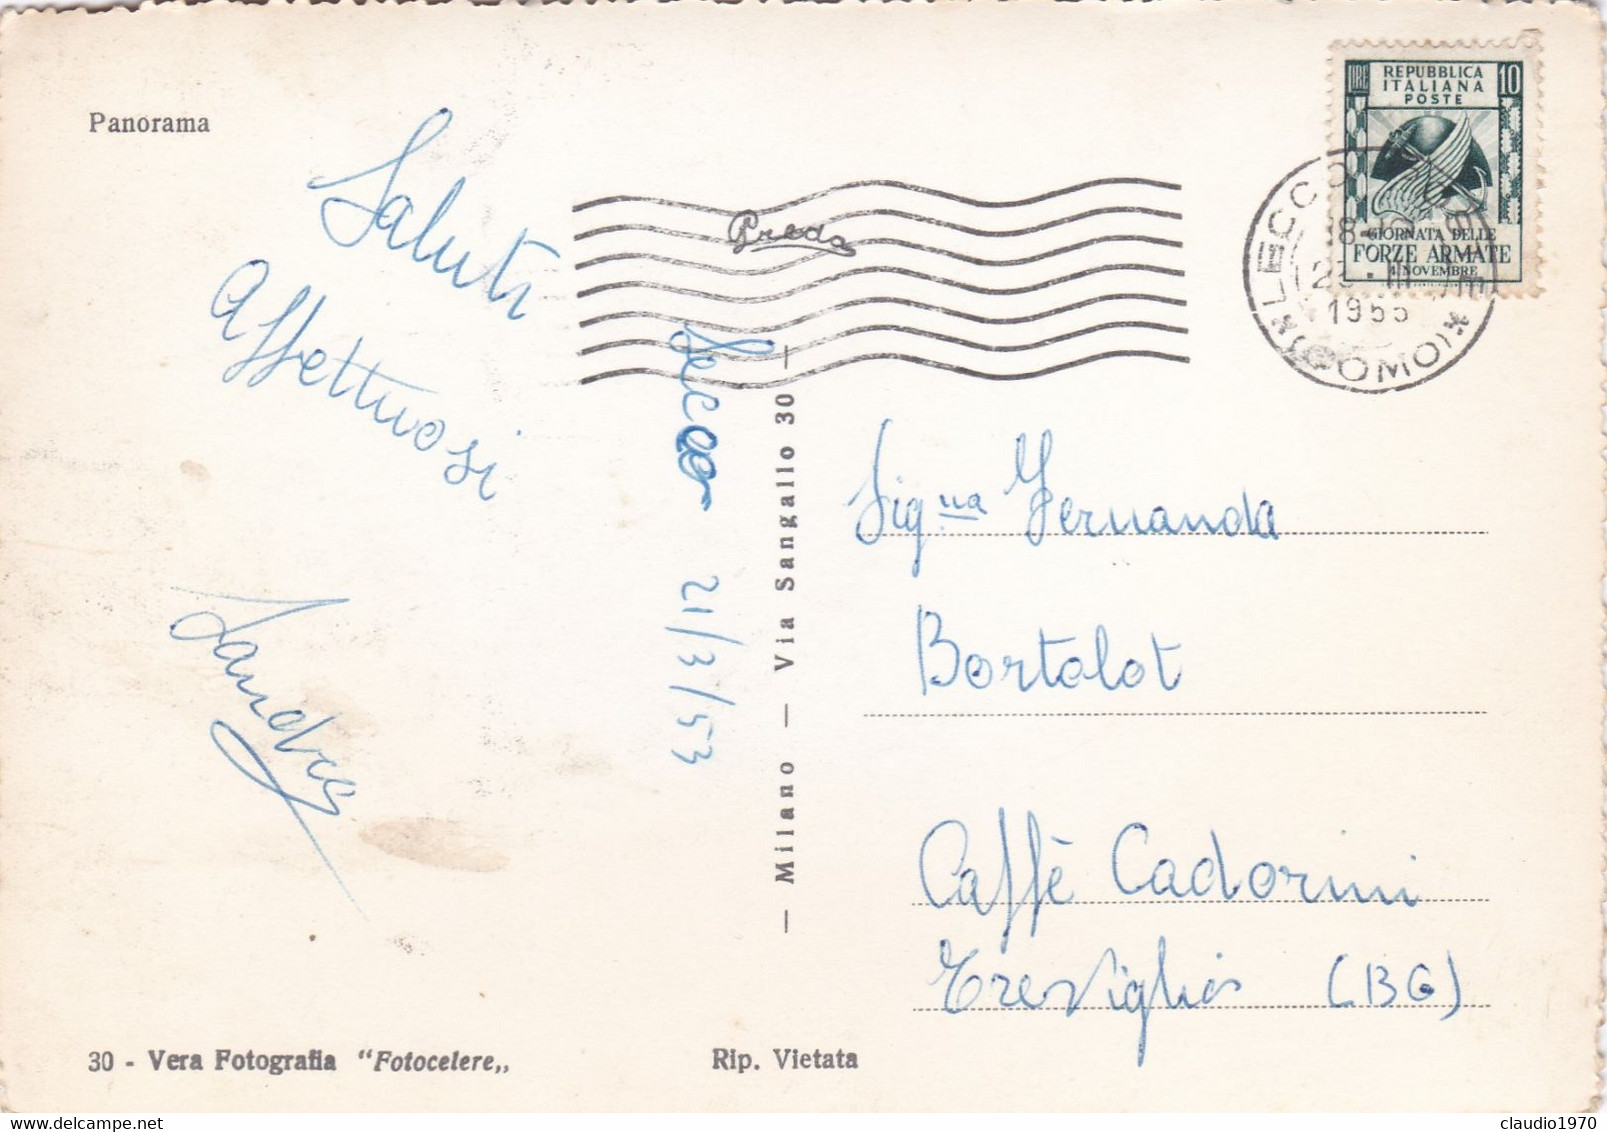 Panorama
Saluti
affettuosi
Sandro
Lecco 21/3/53
Preda
LIRE
REPUBBLICA
10
ITALIANA
POSTE
GIORNATA DELLE
FORZE ARMATE
4 NOVEMBRE
LECCO
18-
23.III
1953
*(COMO)*
Sig.na Fernanda
Bortolot
Caffè Cadorini
Treviglio (BG)
— Milano — Via Sangallo 30 —
30 - Vera Fotografia "Fotocelere„
Rip. Vietata
claudio1970